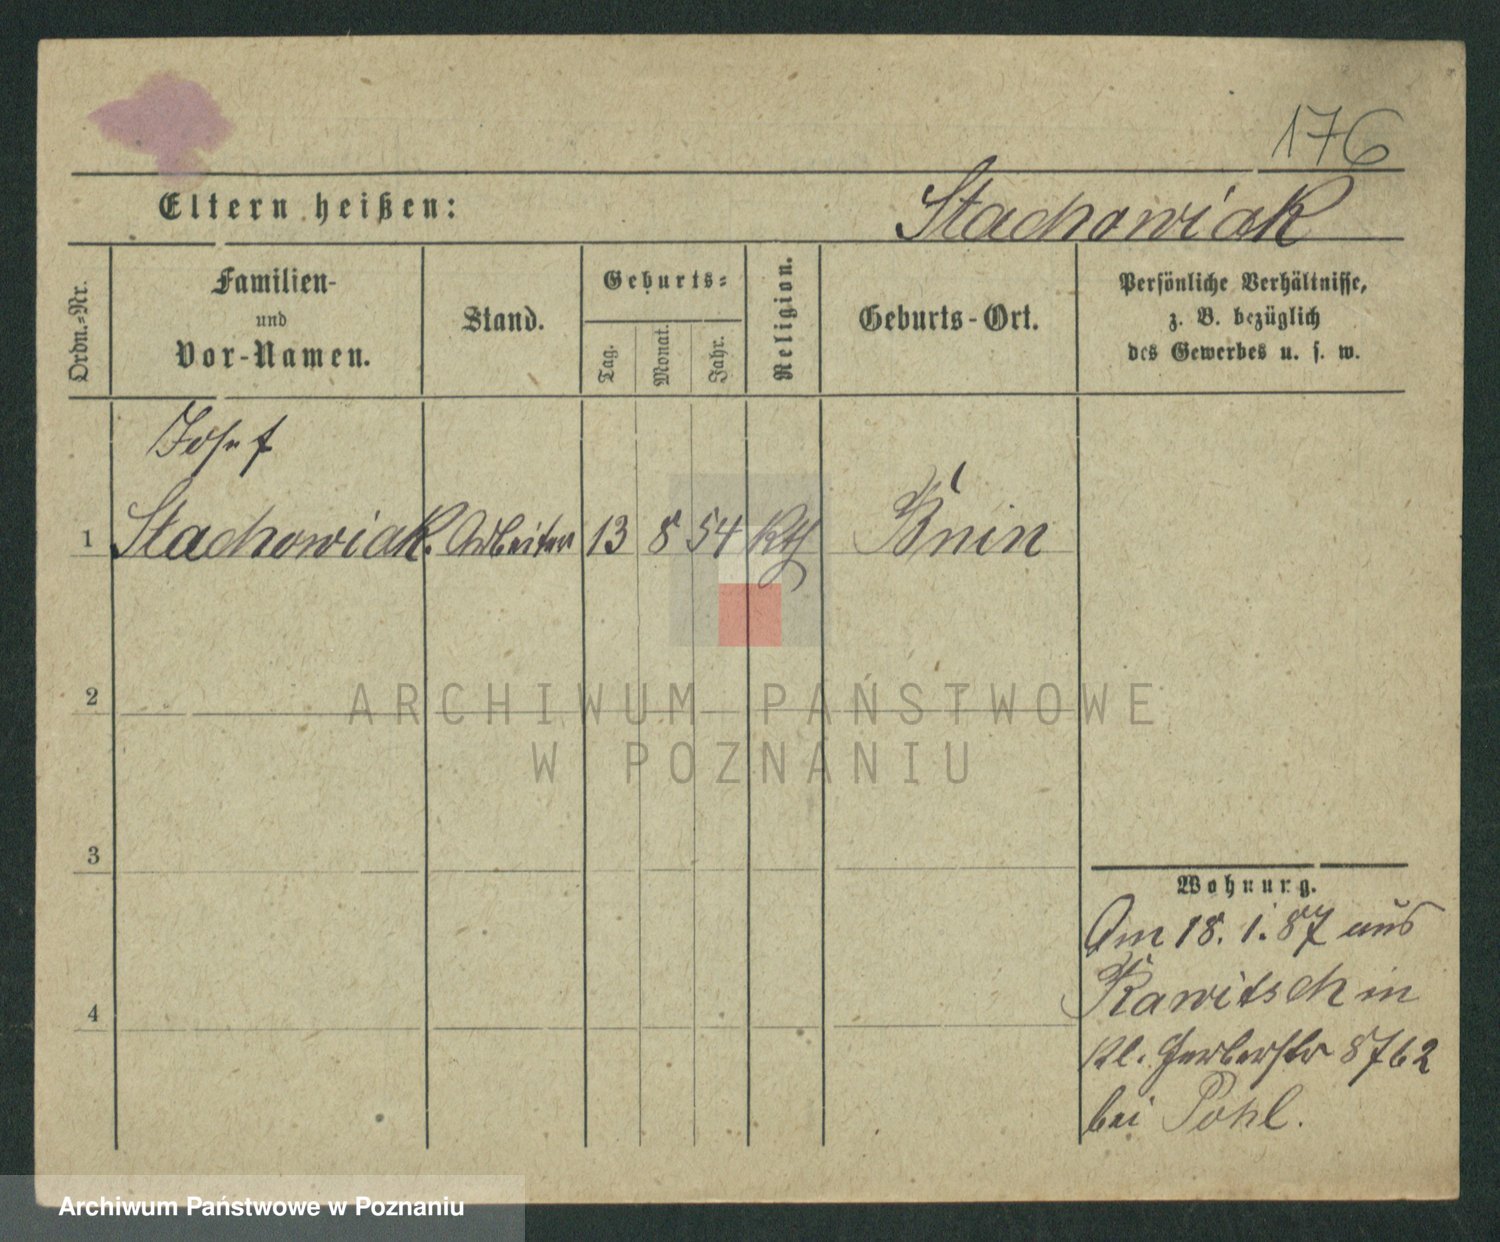 176
Eltern heißen:
Stachowiak
Ordn.-Nr.
Familien-
und
Vor-Namen.
Stand.
Geburts-
Tag.
Monat.
Jahr.
Religion.
Geburts-Ort.
Persönliche Verhältnisse,
z. B. bezüglich
des Gewerbes u. s. w.
Josef
1 Stachowiak. Arbeiter 13 8 54 kth Bnin
2
ARCHIWUM PAŃSTWOWE
W POZNANIU
3
Wohnung.
Am 18. 1. 87 aus
Rawitsch in
4
Kl. Gerberstr 8762
bei Pohl.
Archiwum Państwowe w Poznaniu